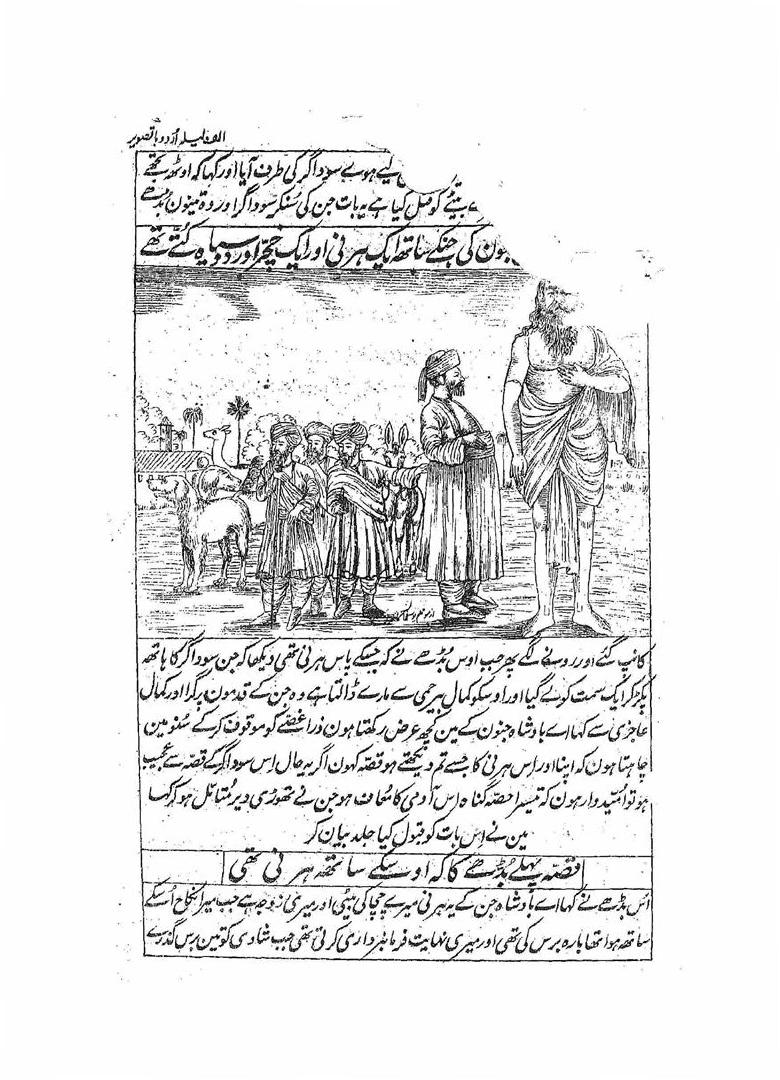 الف لیلہ اُردو با تصویر
لیے ہوے سوداگر کی طرف آیا اور کہا کہ اوٹھ تجھے
بیٹے کو قتل کیا ہے یہ بات جن کی سُنکر سوداگر اور وہ تینون بُڈھے
کی جنکے ساتھ ایک ہرنی اور ایک خچر اور دو سیاہ کُتّے تھے
کانپ گئے اور رونے لگے پھر جب اوس بُڈھے نے کہ جسکے پاس ہرنی تھی دیکھا کہ جن سوداگر کا ہاتھ
پکڑ کر ایک سمت کو لے گیا اور اوسکو کمال بیرحمی سے مارے ڈالتا ہے وہ جن کے قدمون پر گرا اور کمال
عاجزی سے کہا اے بادشاہ جنون کے مین کچھ عرض رکھتا ہون ذرا غصّے کو موقوف کر کے سُنو مین
چاہتا ہون کہ اپنا اور اِس ہرنی کا جسے تم دیکھتے ہو قصہ کہون اگر یہ حال اِس سوداگر کے قصہ سے عجیب
ہو تو اُمیدوار ہون کہ تیسرا حصّہ گناہ اِس آدمی کا معاف ہو جن نے تھوڑی دیر مُتائل ہو کر کہا
مین نے اِس بات کو قبول کیا جلد بیان کر
قصّہ پہلے بُڈھے کا کہ اوسکے ساتھ ہرنی تھی
اُس بُڈھے نے کہا اے بادشاہ جن کے یہ ہرنی میرے چچا کی بیٹی اور میری زوجہ ہے جب میرا نکاح اُسکے
ساتھ ہوا تھا بارہ برس کی تھی اور میری نہایت فرمانبرداری کرتی تھی جب شادی کو تین برس گذرے